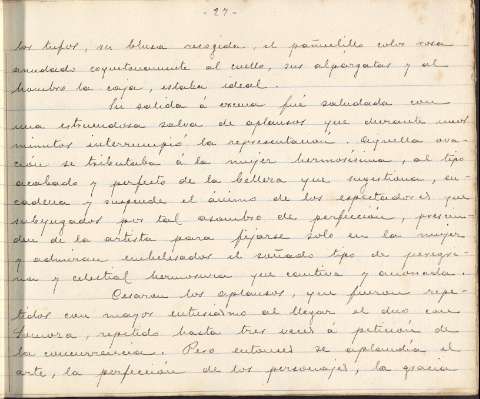 - 27 -
los tufos, su blusa recogida, el pañuelillo color rosa
anudado coquetamente al cuello, sus alpargatas y al
hombro la caja, estaba ideal.
Su salida á escena fué saludada con
una estruendosa salva de aplausos que durante unos
minutos interrumpió la representación. Aquella ova-
ción se tributaba á la mujer hermosísima, al tipo
acabado y perfecto de la belleza que sugestiona, en-
cadena y suspende el ánimo de los espectadores que
subyugados por tal asombro de perfección, prescin-
den de la artista para fijarse solo en la mujer
y admiran embelesados el soñado tipo de peregri-
na y celestial hermosura que cautiva y anonada.
Cesaron los aplausos, que fueron repe-
tidos con mayor entusiasmo al llegar el duo con
Zamora, repetido hasta tres veces á petición de
la concurrencia. Pero entonces se aplaudía el
arte, la perfección de los personajes, la gracia